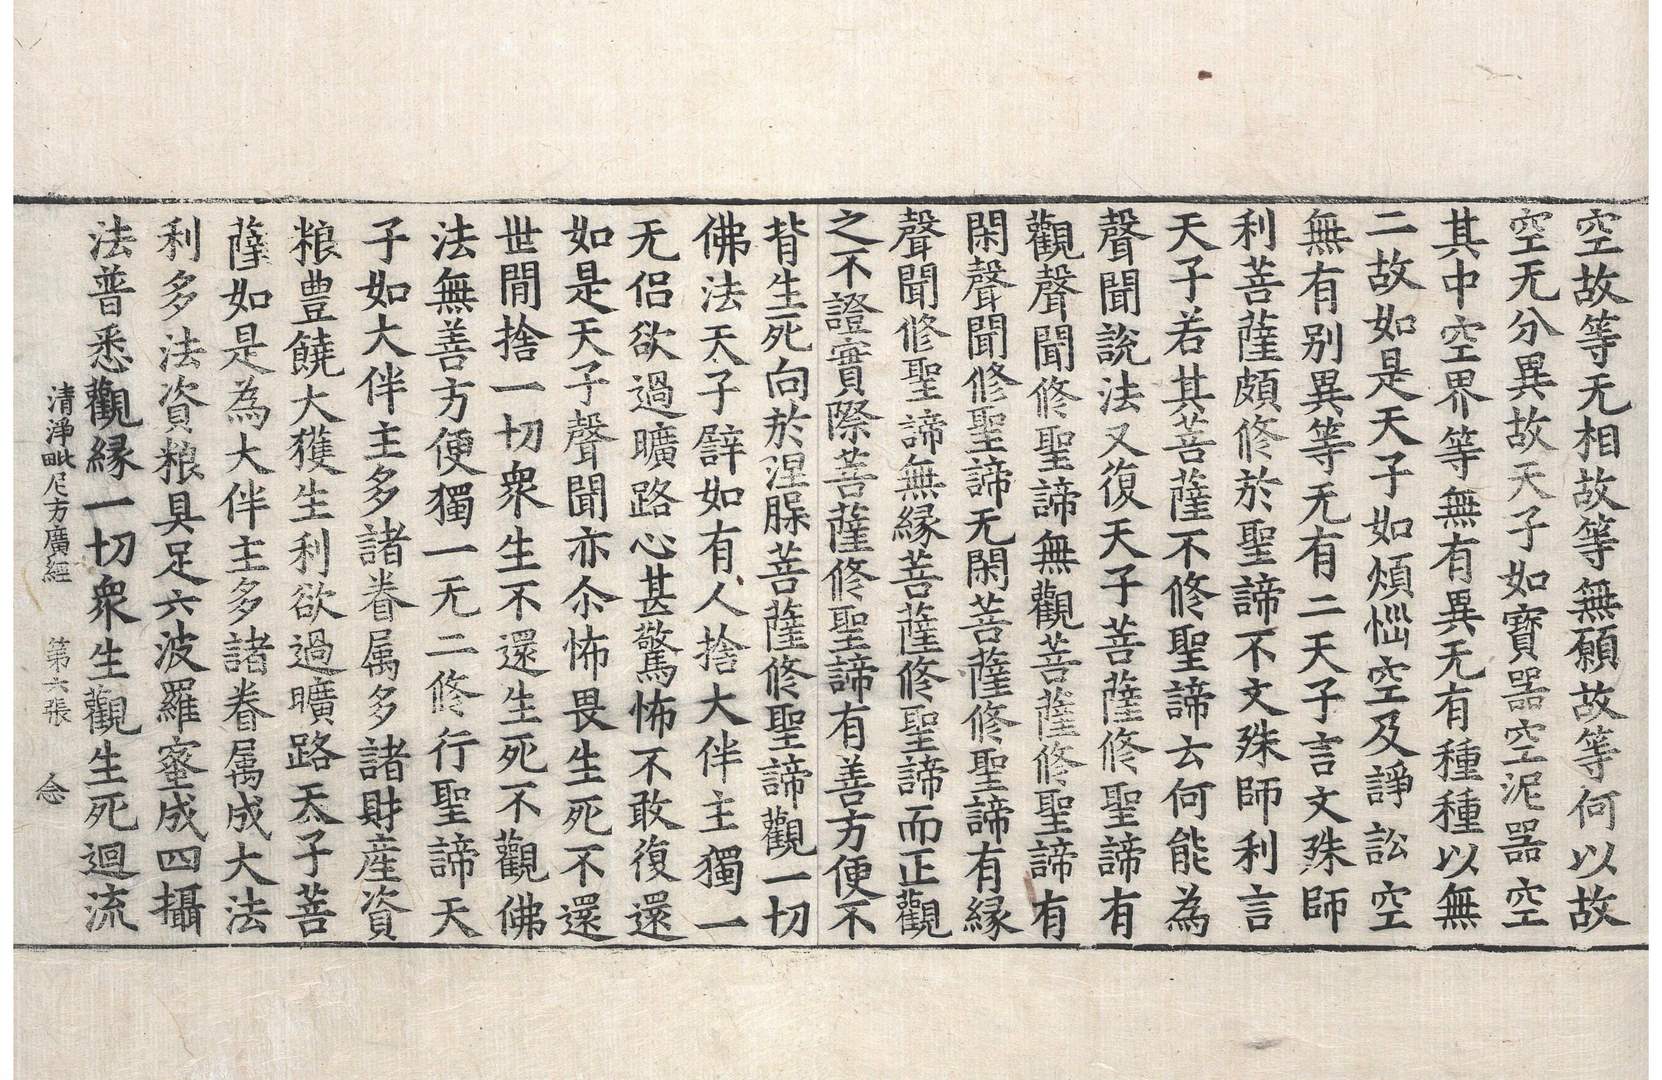 空故等无相故等無願故等何以故
空无分異故天子如寶器空泥器空
其中空界等無有異无有種種以無
二故如是天子如煩惱空及諍訟空
無有別異等无有二天子言文殊師
利菩薩頗修於聖諦不文殊師利言
天子若其菩薩不修聖諦云何能為
聲聞說法又復天子菩薩修聖諦有
觀聲聞修聖諦無觀菩薩修聖諦有
閑聲聞修聖諦无閑菩薩修聖諦有緣
聲聞修聖諦無緣菩薩修聖諦而正觀
之不證實際菩薩修聖諦有善方便不
背生死向於涅脲菩薩修聖諦觀一切
佛法天子辟如有人捨大伴主獨一
无侶欲過曠路心甚驚怖不敢復還
如是天子聲聞亦尒怖畏生死不還
世間捨一切衆生不還生死不觀佛
法無善方便獨一无二修行聖諦天
子如大伴主多諸眷属多諸財產資
粮豊饒大獲生利欲過曠路天子菩
薩如是為大伴主多諸眷属成大法
利多法資粮具足六波羅蜜成四攝
法普悉觀緣一切衆生觀生死迴流
清淨毗尼方廣經 第六張 念